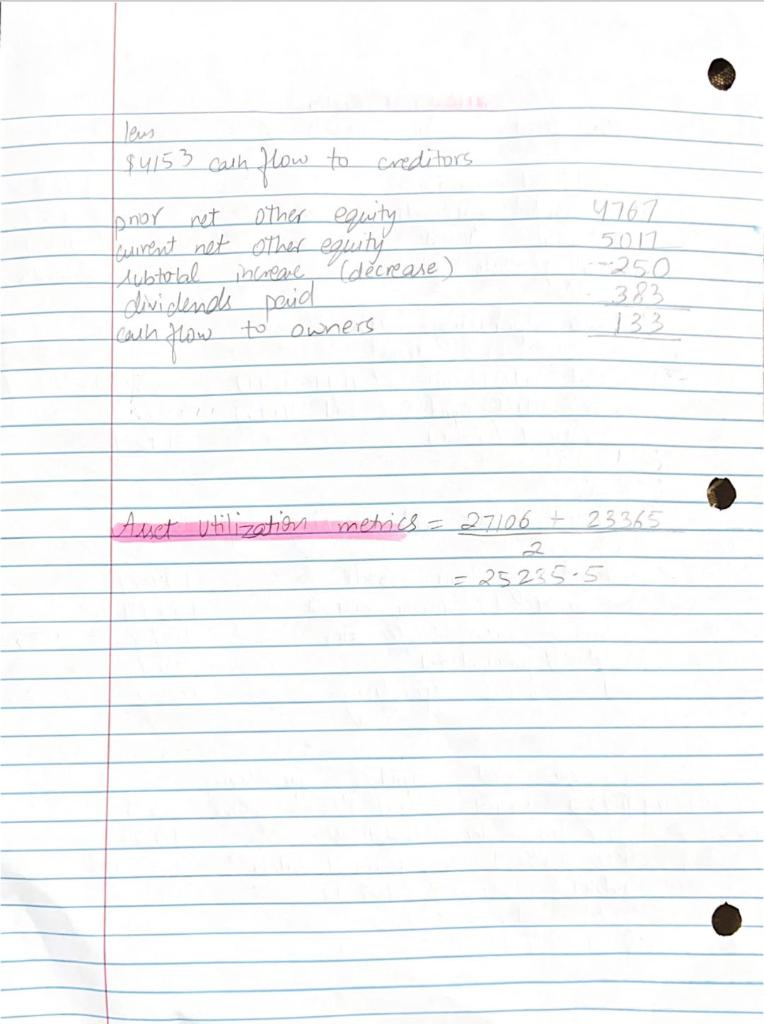 less
$4153 cash flow to creditors
prior net other equity 4767
current net other equity 5017
subtotal increase (decrease) -250
dividends paid 383
cash flow to owners 133
Asset utilization metrics = 27106 + 23365
2
= 25235.5